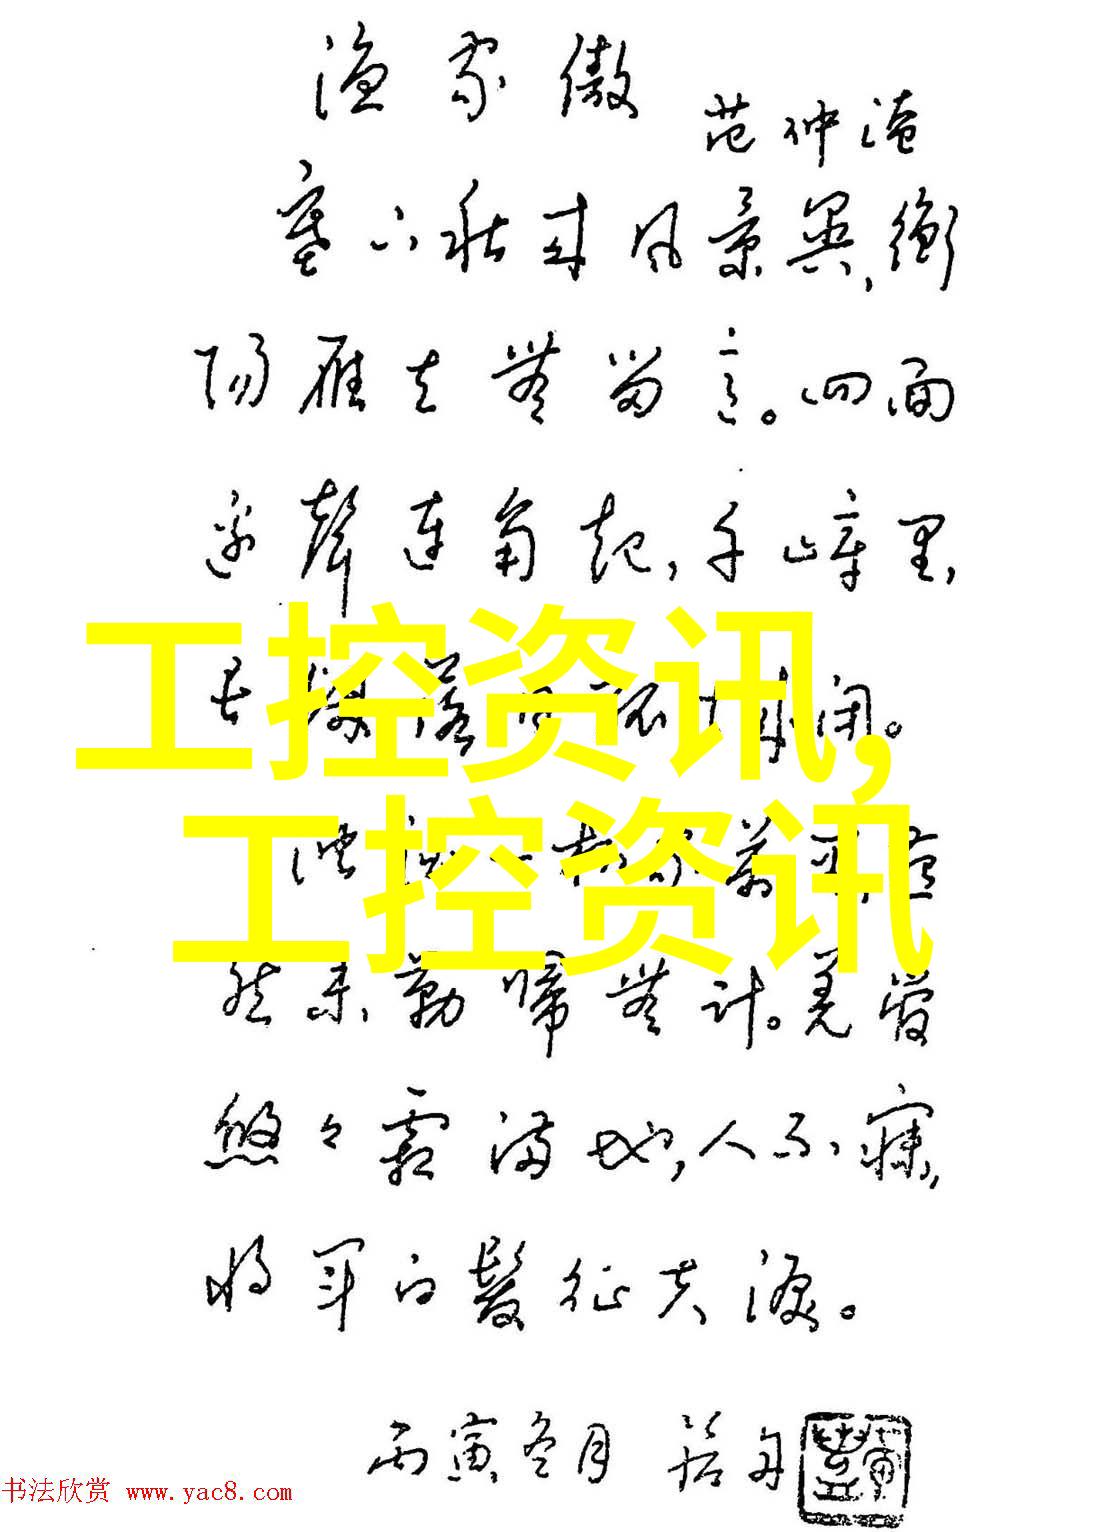 渔家傲
范仲淹
塞下秋来风景异,衡
阳雁去无留意。四面
边聲连角起,千嶂里,
长烟落日孤城闭。
工控资讯,
浊酒一杯家万里,燕
工控资讯
然未勒归無计。羌管
悠々霜满地,人不寐,
将军白髮征夫淚。
丙寅冬月
书法欣赏 www.yac8.com